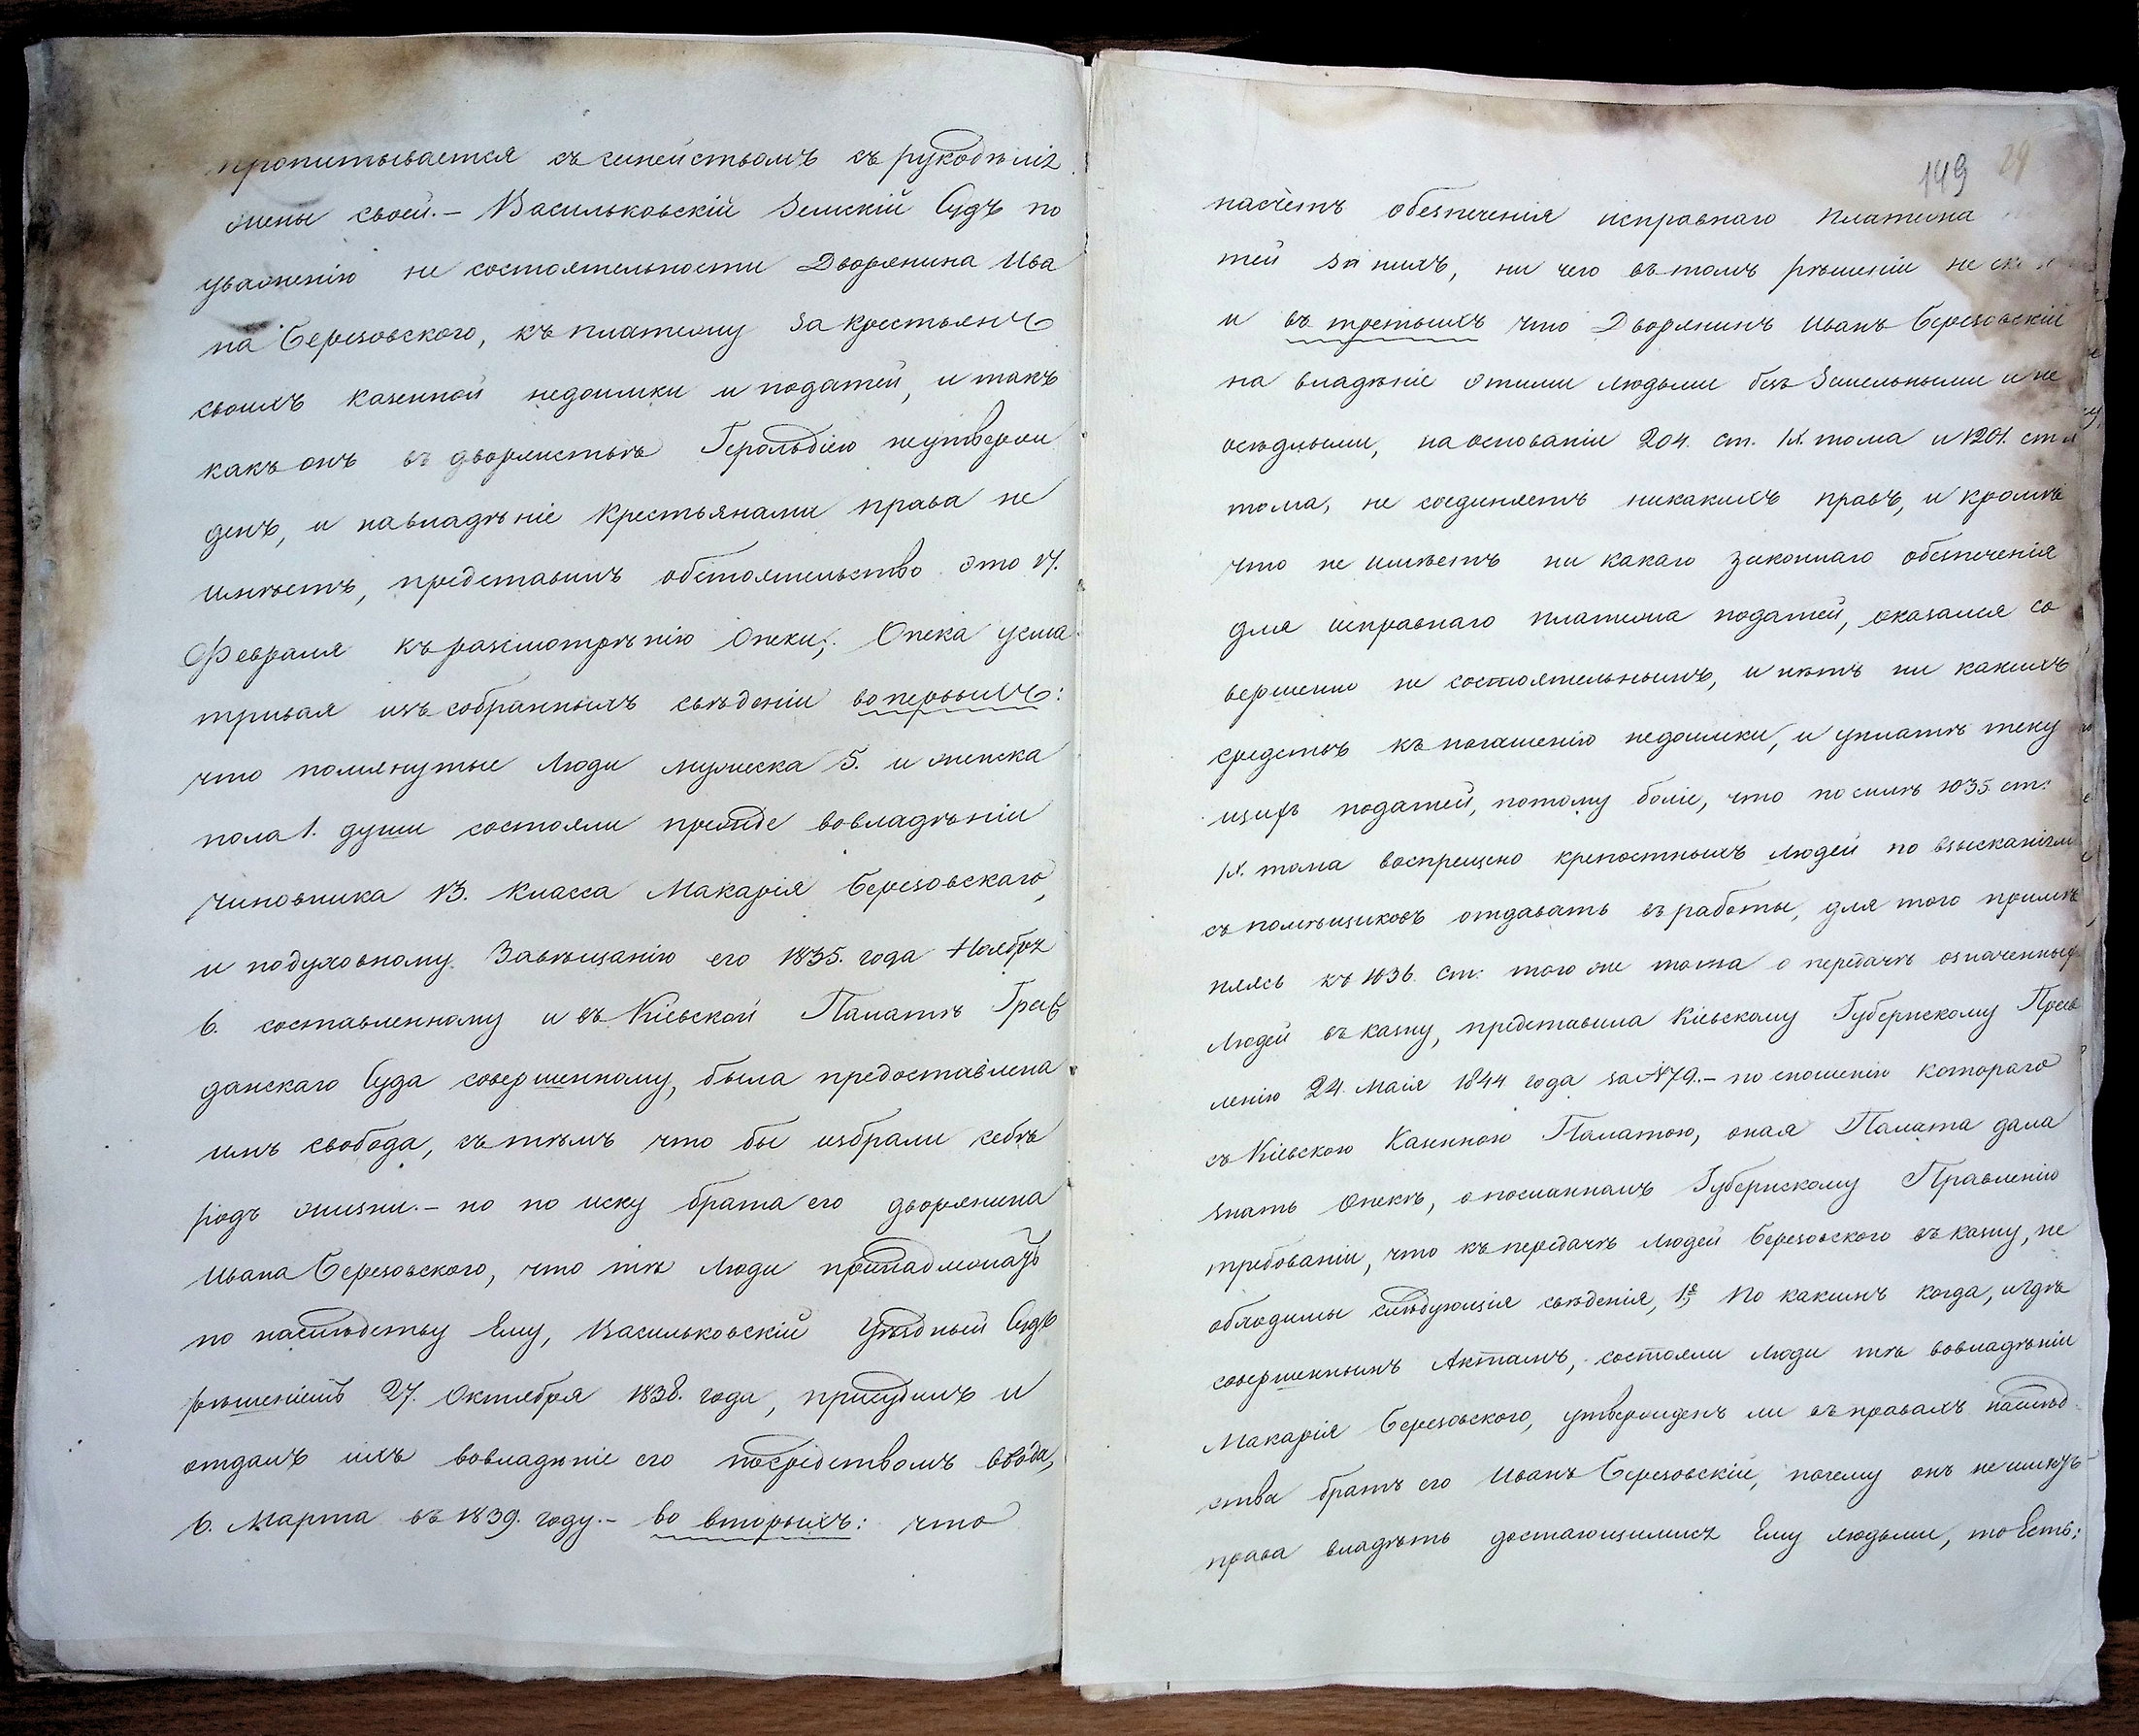 пропитывается съ семействомъ съ рукодѣлія
жены своей.- Васильковскій Земскій Судъ по
уваженію не состоятельности Дворянина Ива
на Березовского, къ платежу за крестьянъ
своихъ казенной недоимки и податей, и такъ
какъ онъ въ дворянствѣ Герольдіею не утверж
денъ, и на владѣніе крестьянами права не
имѣетъ, представилъ обстоятельство это 17.
Февраля къ разсмотрѣнію Опеки; Опека усма
тривая изъ собранныхъ свѣденіи во первыхъ:
что помянутые Люди мужеска 5. и женска
пола 1. души состояли прежде во владѣніи
чиновника 13. класса Макарія Березовскаго,
и по духовному Завѣщанію его 1835. года Ноября
6. составленному и въ Кіевской Палатѣ Граж
данскаго Суда совершенному, была предоставлена
имъ свобода, съ тѣмъ что бы избрали себѣ
родъ жизни.- но по иску брата его дворянина
Ивана Березовского, что тѣ Люди принадлежатъ
по наслѣдству Ему, Васильковскій Уѣздный Судъ
рѣшеніемъ 27. Октября 1838. года, присудилъ и
отдалъ ихъ во владѣніе его посредствомъ ввода,
6. Марта въ 1839. году.- во вторыхъ: что
149 29
насчетъ обезпеченія исправнаго платежа
тей за нихъ, ни чего въ томъ рѣшеніи не
и въ третьихъ что Дворянинъ Иванъ Березовскій
на владѣніе этими людьми безъ Земельными и не
осѣдлыми, на основаніи 204. ст. IX. тома и 1201. ст
тома, не соединяетъ никакихъ правъ, и кромѣ
что не имѣетъ ни какаго законнаго обезпеченія
для исправнаго платежа податей, оказался со
вершенно не состоятельнымъ, и нѣтъ ни какихъ
средствъ къ погашенію недоимки, и уплатѣ теку
щихъ податей, потому болѣе, что по силѣ 1035 ст:
IX. тома воспрещено крепостныхъ людей по взысканіямъ
съ помѣщиковъ отдавать въ работы, для того примѣ
няясь къ 1036. ст: того же тома о передачѣ означенныхъ
людей въ казну, представила Кіевскому Губернскому Прав
ленію 24. Маія 1844 года за № 79.- по сношенію котораго
съ Кіевскою Казенною Палатою, оная Палата дала
знать Опекѣ, о посланномъ Губернскому Правленію
требованіи, что къ передачѣ людей Березовского въ казну, не
обходимы слѣдующія свѣденія, 1е, По какимъ когда, и гдѣ
совершеннымъ Актамъ, состояли люди тѣ во владѣніи
Макарія Березовского, утвержденъ ли въ правахъ наслѣд
ства братъ его Иванъ Березовскій, почему онъ не имѣетъ
права владѣть достающимися Ему людьми, то Есть: